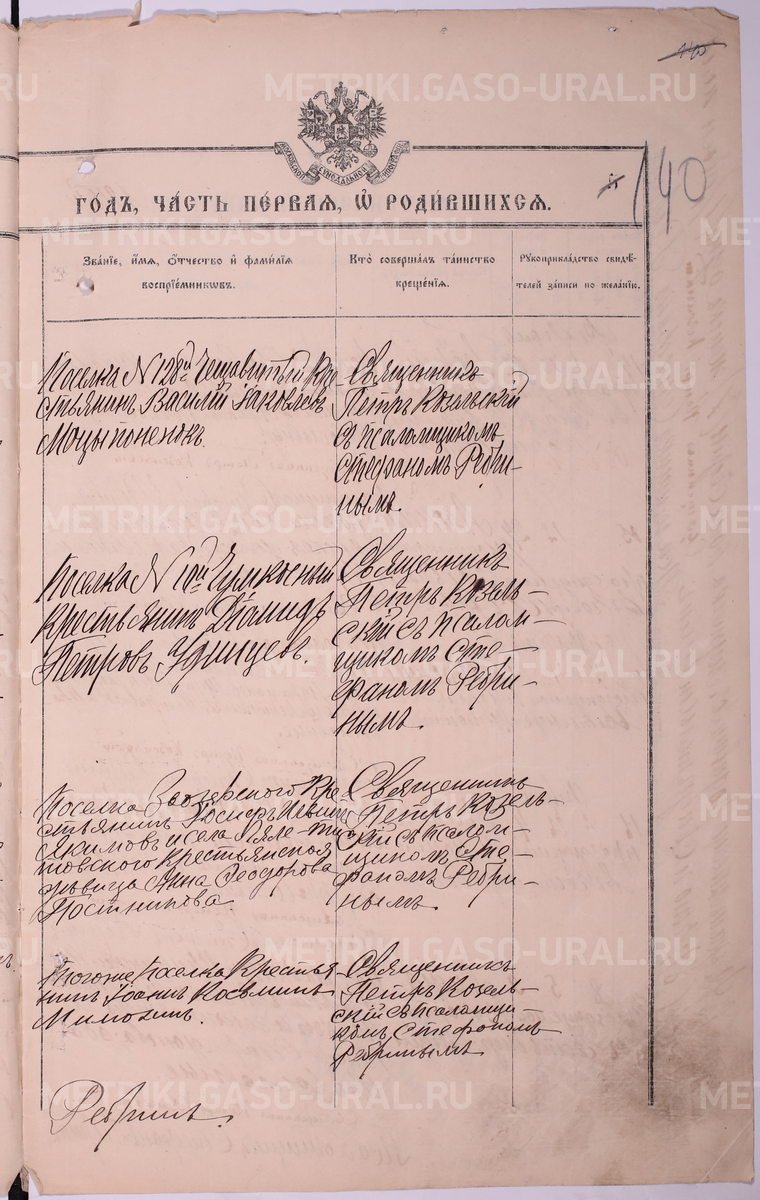 METRIKI.GASO-URAL.RU
140
ГОДЪ, ЧАСТЬ ПЕРВАЯ, Ѿ РОДИВШИХСЯ.
Званіе, имя, отчество и фамилія
воспріемниковъ.
Кто совершалъ таинство
крещенія.
Рукоприкладство свидѣ-
телей записи по желанію.
Поселка N 128й Кре-
стьянинъ Василій Іаковлевъ
Священникъ
Петръ Козельскій
съ псаломщикомъ
Стефаномъ Ребри-
нымъ.
Поселка N
Крестьянинъ Діомидъ
Петровъ
Священникъ
Петръ Козель-
скій съ псалом-
щикомъ Сте-
фаномъ Ребри-
нымъ.
Поселка Заозерского Кре-
стьянинъ
Якимовъ и села
Крестьянская
дѣвица Анна Ѳеодорова
Постникова.
Священникъ
Петръ Козель-
скій съ псалом-
щикомъ Сте-
фаномъ Ребри-
нымъ.
Тогоже поселка Крестья-
нинъ Іоаннъ Косьминъ
Священникъ
Петръ Козель-
скій съ псаломщи-
комъ Стефаномъ
Ребринымъ
Ребринъ.